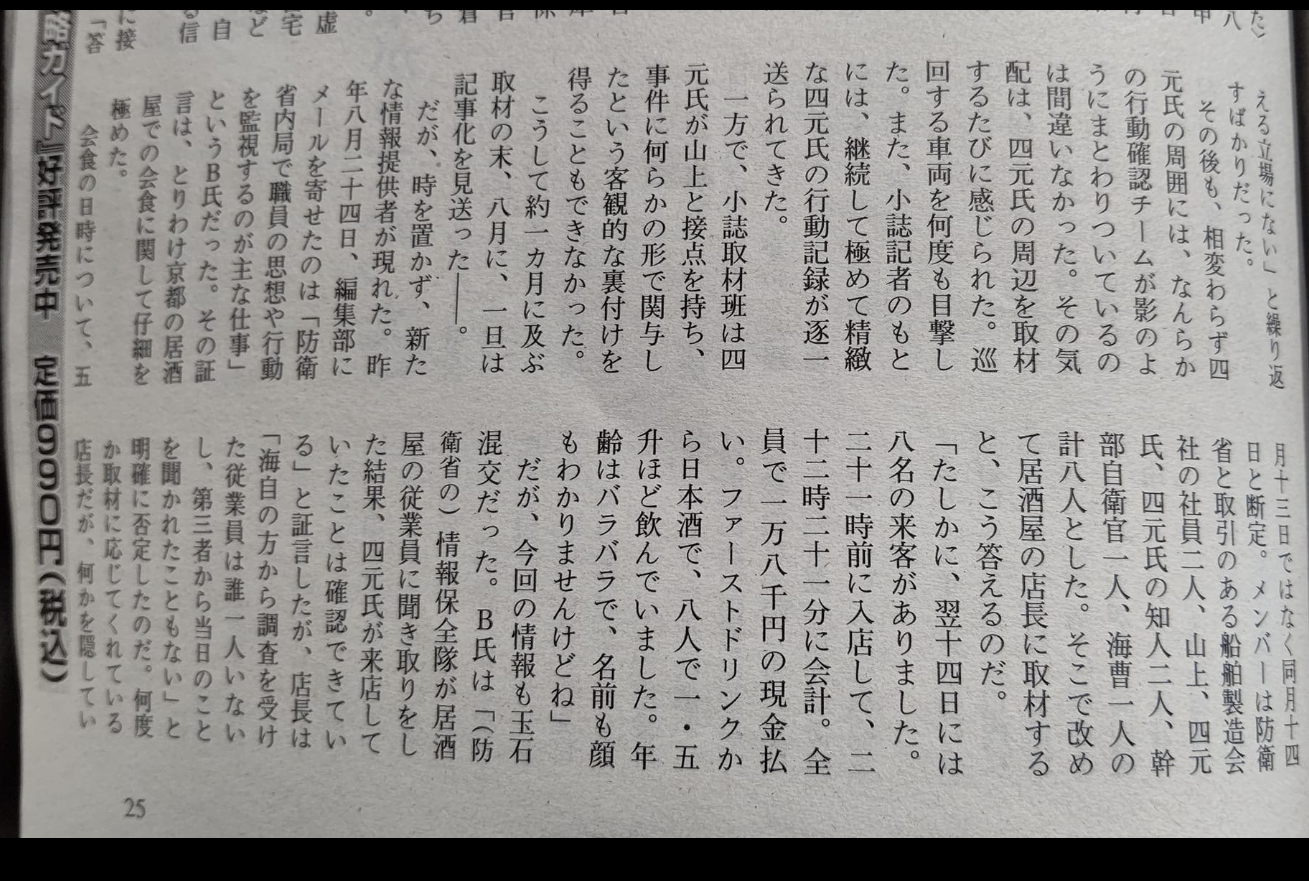 える立場にない」と繰り返
すばかりだった。
その後も、相変わらず四
元氏の周囲には、なんらか
の行動確認チームが影のよ
うにまとわりついているの
は間違いなかった。その気
配は、四元氏の周辺を取材
するたびに感じられた。巡
回する車両を何度も目撃し
た。また、小誌記者のもと
には、継続して極めて精緻
な四元氏の行動記録が逐一
送られてきた。
一方で、小誌取材班は四
元氏が山上と接点を持ち、
事件に何らかの形で関与し
たという客観的な裏付けを
得ることもできなかった。
こうして約一カ月に及ぶ
取材の末、八月に、一旦は
記事化を見送った――。
だが、時を置かず、新た
な情報提供者が現れた。昨
年八月二十四日、編集部に
メールを寄せたのは「防衛
省内局で職員の思想や行動
を監視するのが主な仕事」
というB氏だった。その証
言は、とりわけ京都の居酒
屋での会食に関して仔細を
極めた。
会食の日時について、五
月十三日ではなく同月十四
日と断定。メンバーは防衛
省と取引のある船舶製造会
社の社員二人、山上、四元
氏、四元氏の知人二人、幹
部自衛官一人、海曹一人の
計八人とした。そこで改め
て居酒屋の店長に取材する
と、こう答えるのだ。
「たしかに、翌十四日には
八名の来客がありました。
二十一時前に入店して、二
十二時二十一分に会計。全
員で一万八千円の現金払
い。ファーストドリンクか
ら日本酒で、八人で一・五
升ほど飲んでいました。年
齢はバラバラで、名前も顔
もわかりませんけどね」
だが、今回の情報も玉石
混交だった。B氏は「（防
衛省の）情報保全隊が居酒
屋の従業員に聞き取りをし
た結果、四元氏が来店して
いたことは確認できてい
る」と証言したが、店長は
「海自の方から調査を受け
た従業員は誰一人いない
し、第三者から当日のこと
を聞かれたこともない」と
明確に否定したのだ。何度
か取材に応じてくれている
店長だが、何かを隠してい
ガイド』好評発売中 定価990円（税込）
25